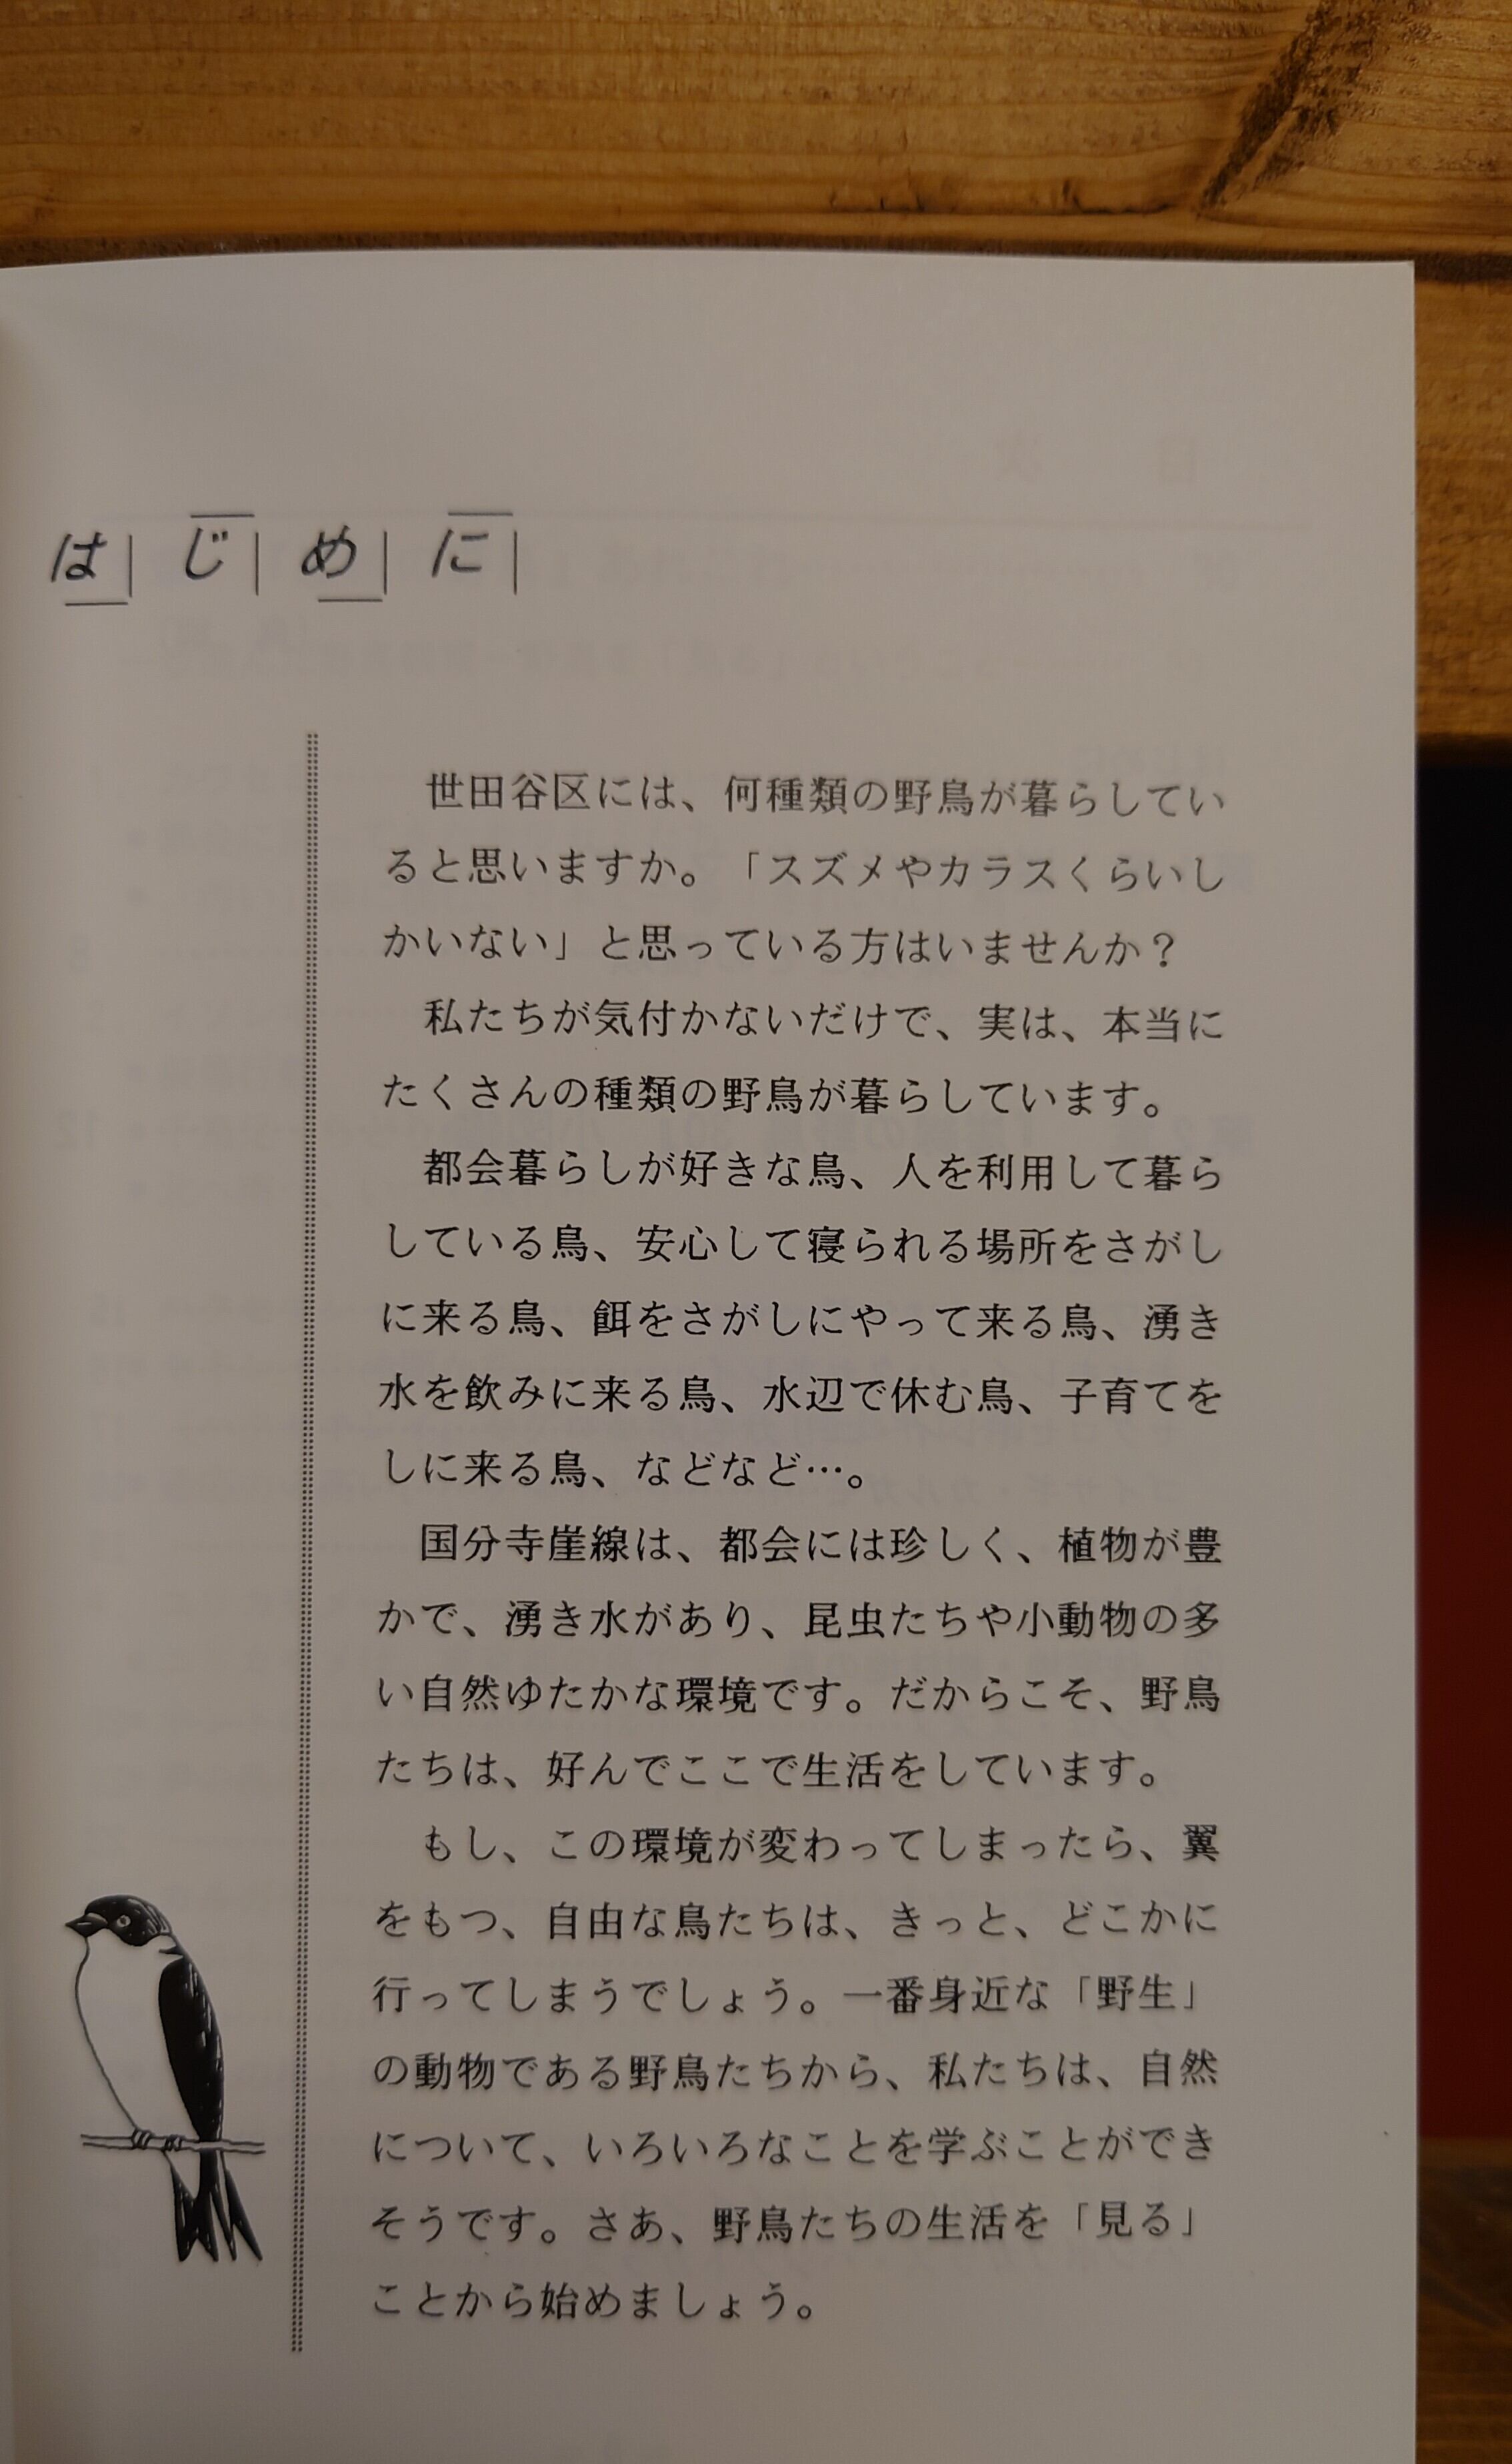 はじめに
世田谷区には、何種類の野鳥が暮らしてい
ると思いますか。「スズメやカラスくらいし
かいない」と思っている方はいませんか？
私たちが気付かないだけで、実は、本当に
たくさんの種類の野鳥が暮らしています。
都会暮らしが好きな鳥、人を利用して暮ら
している鳥、安心して寝られる場所をさがし
に来る鳥、餌をさがしにやって来る鳥、湧き
水を飲みに来る鳥、水辺で休む鳥、子育てを
しに来る鳥、などなど…。
国分寺崖線は、都会には珍しく、植物が豊
かで、湧き水があり、昆虫たちや小動物の多
い自然ゆたかな環境です。だからこそ、野鳥
たちは、好んでここで生活をしています。
もし、この環境が変わってしまったら、翼
をもつ、自由な鳥たちは、きっと、どこかに
行ってしまうでしょう。一番身近な「野生」
の動物である野鳥たちから、私たちは、自然
について、いろいろなことを学ぶことができ
そうです。さあ、野鳥たちの生活を「見る」
ことから始めましょう。